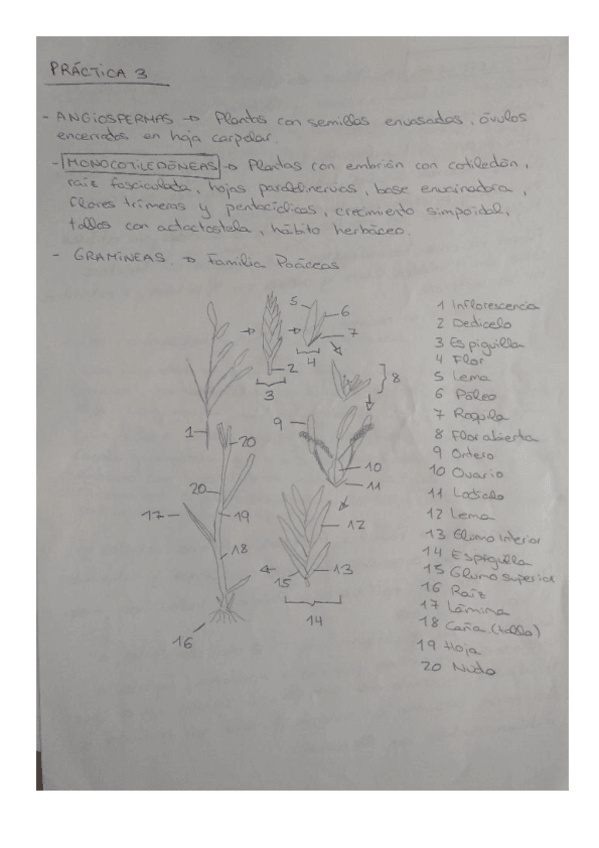 PRÁCTICA 3
- ANGIOSPERMAS → Plantas con semillas envasadas, óvulos
encerrados en hoja carpelar.
- MONOCOTILEDÓNEAS → Plantas con embrión con cotiledón,
raíz fasciculada, hojas paralelinervias, base envainadora,
flores trímeras y pentacíclicas, crecimiento simpoidal,
tallos con actactostela, hábito herbáceo.
- GRAMINEAS → Familia Poáceas
1 Inflorescencia
2 Pedicelo
3 Espiguilla
4 Flor
5 Lema
6 Pálea
7 Raquila
8 Flor abierta
9 Antera
10 Ovario
11 Lodícula
12 Lema
13 Gluma inferior
14 Espiguilla
15 Gluma superior
16 Raíz
17 Lámina
18 Caña (tallo)
19 Hoja
20 Nudo
5
6
7
4
2
3
8
9
1
20
10
11
20
17
19
12
18
13
15
14
16